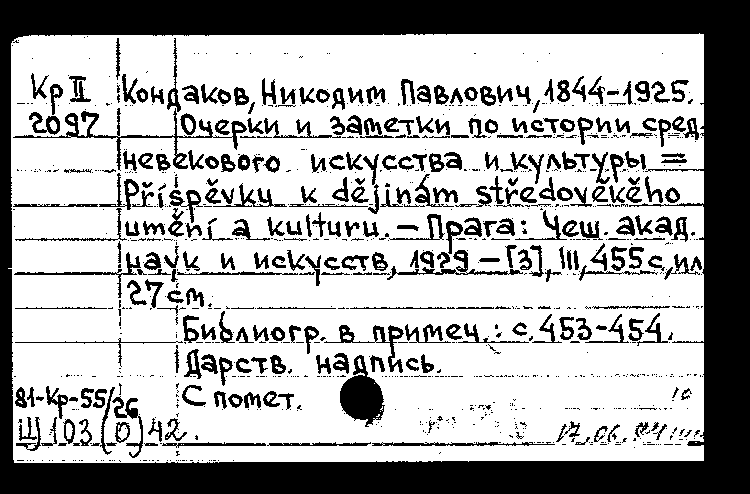 Кр II Кондаков, Никодим Павлович, 1844-1925.
2097 Очерки и заметки по истории сред-
невекового искусства и культуры =
Příspěvky k dějinám středověkého
umění a kulturu. — Прага: Чеш. акад.
наук и искусств, 1929. — [3], III, 455 с, ил
27 см.
Библиогр. в примеч.: с. 453-454.
Дарств. надпись.
81-Кр-55/26 С помет. 10
Щ 103(0)42. 17.06.